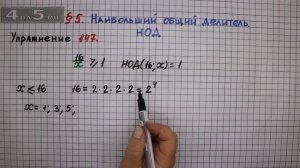 4as5.ru
§5. Наибольший общий делитель
НОД
Упражнение 147.
16/x ⩾ 1 НОД(16; x) = 1
x ≤ 16 16 = 2 · 2 · 2 · 2 = 2⁴
x = 1; 3; 5;